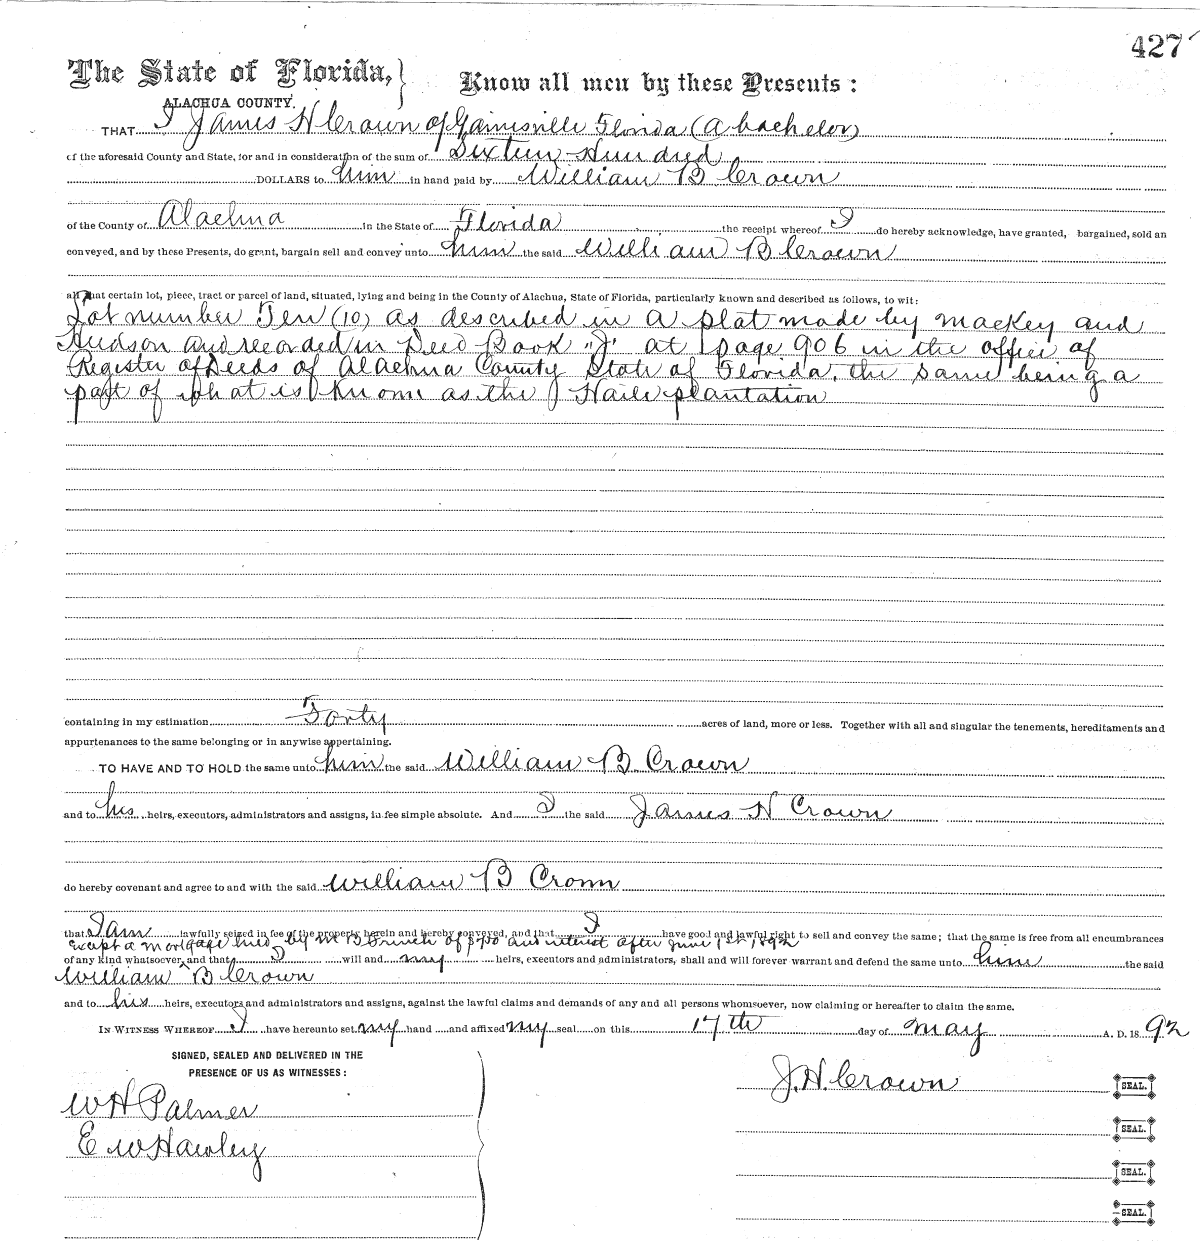 427
The State of Florida,
ALACHUA COUNTY.
Know all men by these Presents:
THAT I James H Crown of Gainesville Florida (a bachelor)
of the aforesaid County and State, for and in consideration of the sum of Sixteen Hundred
DOLLARS to him in hand paid by William B Crown
of the County of Alachua in the State of Florida the receipt whereof I do hereby acknowledge, have granted, bargained, sold an
conveyed, and by these Presents, do grant, bargain sell and convey unto him the said William B Crown
all that certain lot, piece, tract or parcel of land, situated, lying and being in the County of Alachua, State of Florida, particularly known and described as follows, to wit:
Lot number Ten (10) as described in a plat made by Mackey and
Hudson and recorded in Deed Book "J" at page 906 in the office of
Register of Deeds of Alachua County State of Florida. the same being a
part of what is known as the Haile plantation
containing in my estimation Forty acres of land, more or less. Together with all and singular the tenements, hereditaments and
appurtenances to the same belonging or in anywise appertaining.
TO HAVE AND TO HOLD the same unto him the said William B Crown
and to his heirs, executors, administrators and assigns, in fee simple absolute. And I the said James H Crown
do hereby covenant and agree to and with the said William B Crown
that I am lawfully seized in fee of the property herein and hereby conveyed, and that I have good and lawful right to sell and convey the same; that the same is free from all encumbrances
Except a mortgage held by of $700 and interest after June 1st 1892
of any kind whatsoever, and that I will and my heirs, executors and administrators, shall and will forever warrant and defend the same unto him the said
William B Crown
and to his heirs, executors and administrators and assigns, against the lawful claims and demands of any and all persons whomsoever, now claiming or hereafter to claim the same.
IN WITNESS WHEREOF I have hereunto set my hand and affixed my seal on this 17th day of May A. D. 1892
SIGNED, SEALED AND DELIVERED IN THE
PRESENCE OF US AS WITNESSES:
J.H. Crown SEAL.
W H Palmer
SEAL.
E W Hawley
SEAL.
SEAL.